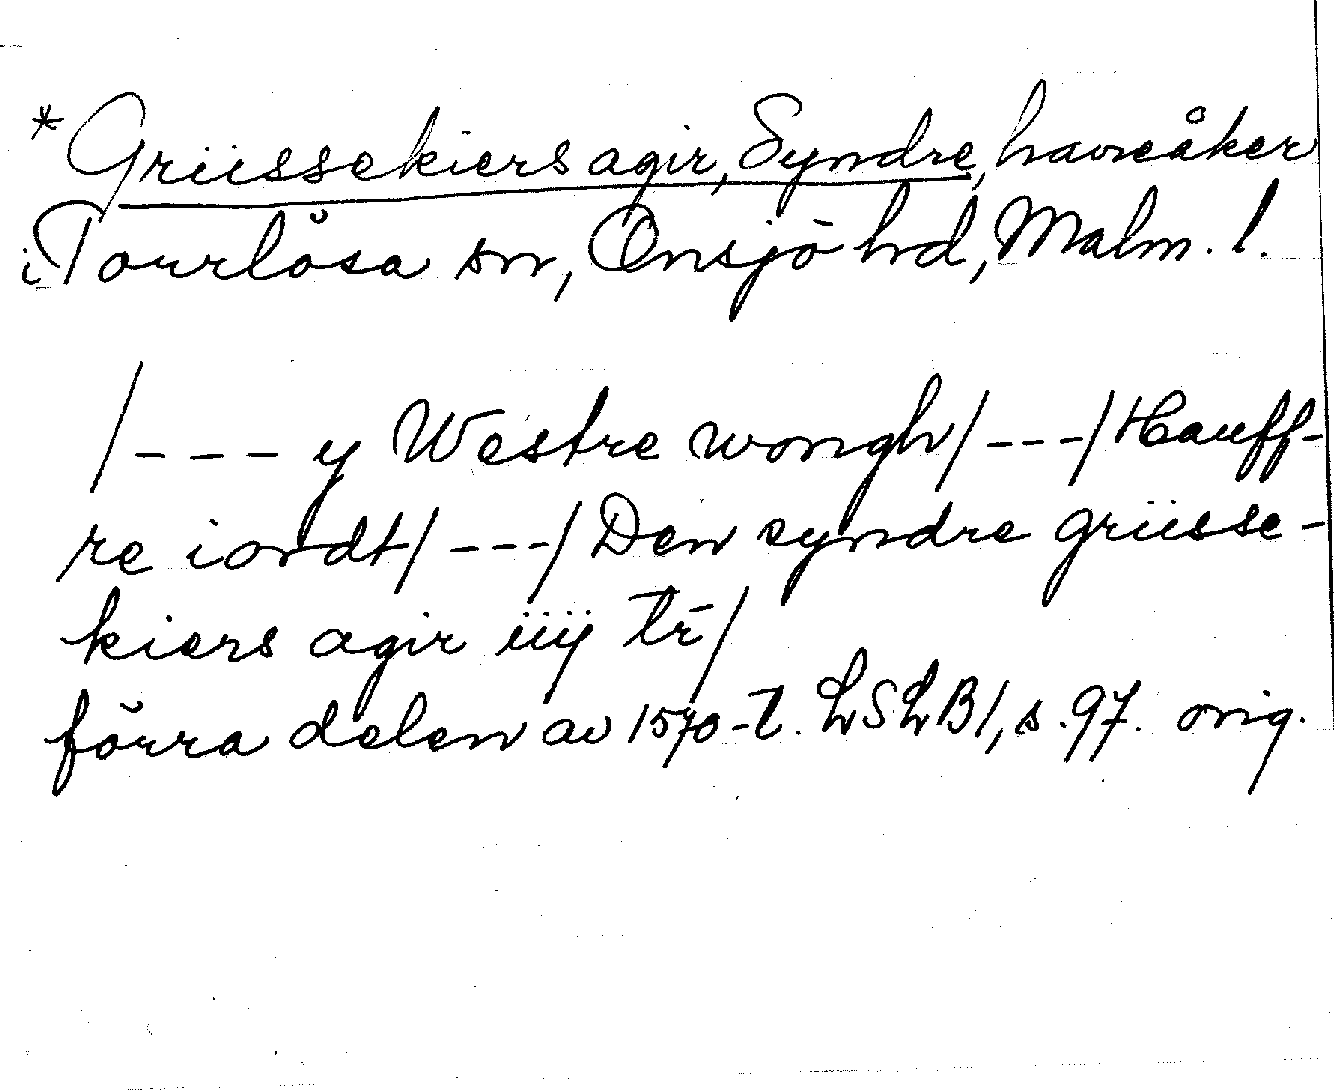 *Grüssekiers agir, Syndre, havreåker
i Torrlösa sn, Onsjö hd, Malm. l.
/--- y Westre wongh/---/Hauff-
re iordt/---/Den syndre grüsse-
kiers agir iiij tr̄/
förra delen av 1570-t. LSLB1, s. 97. orig.